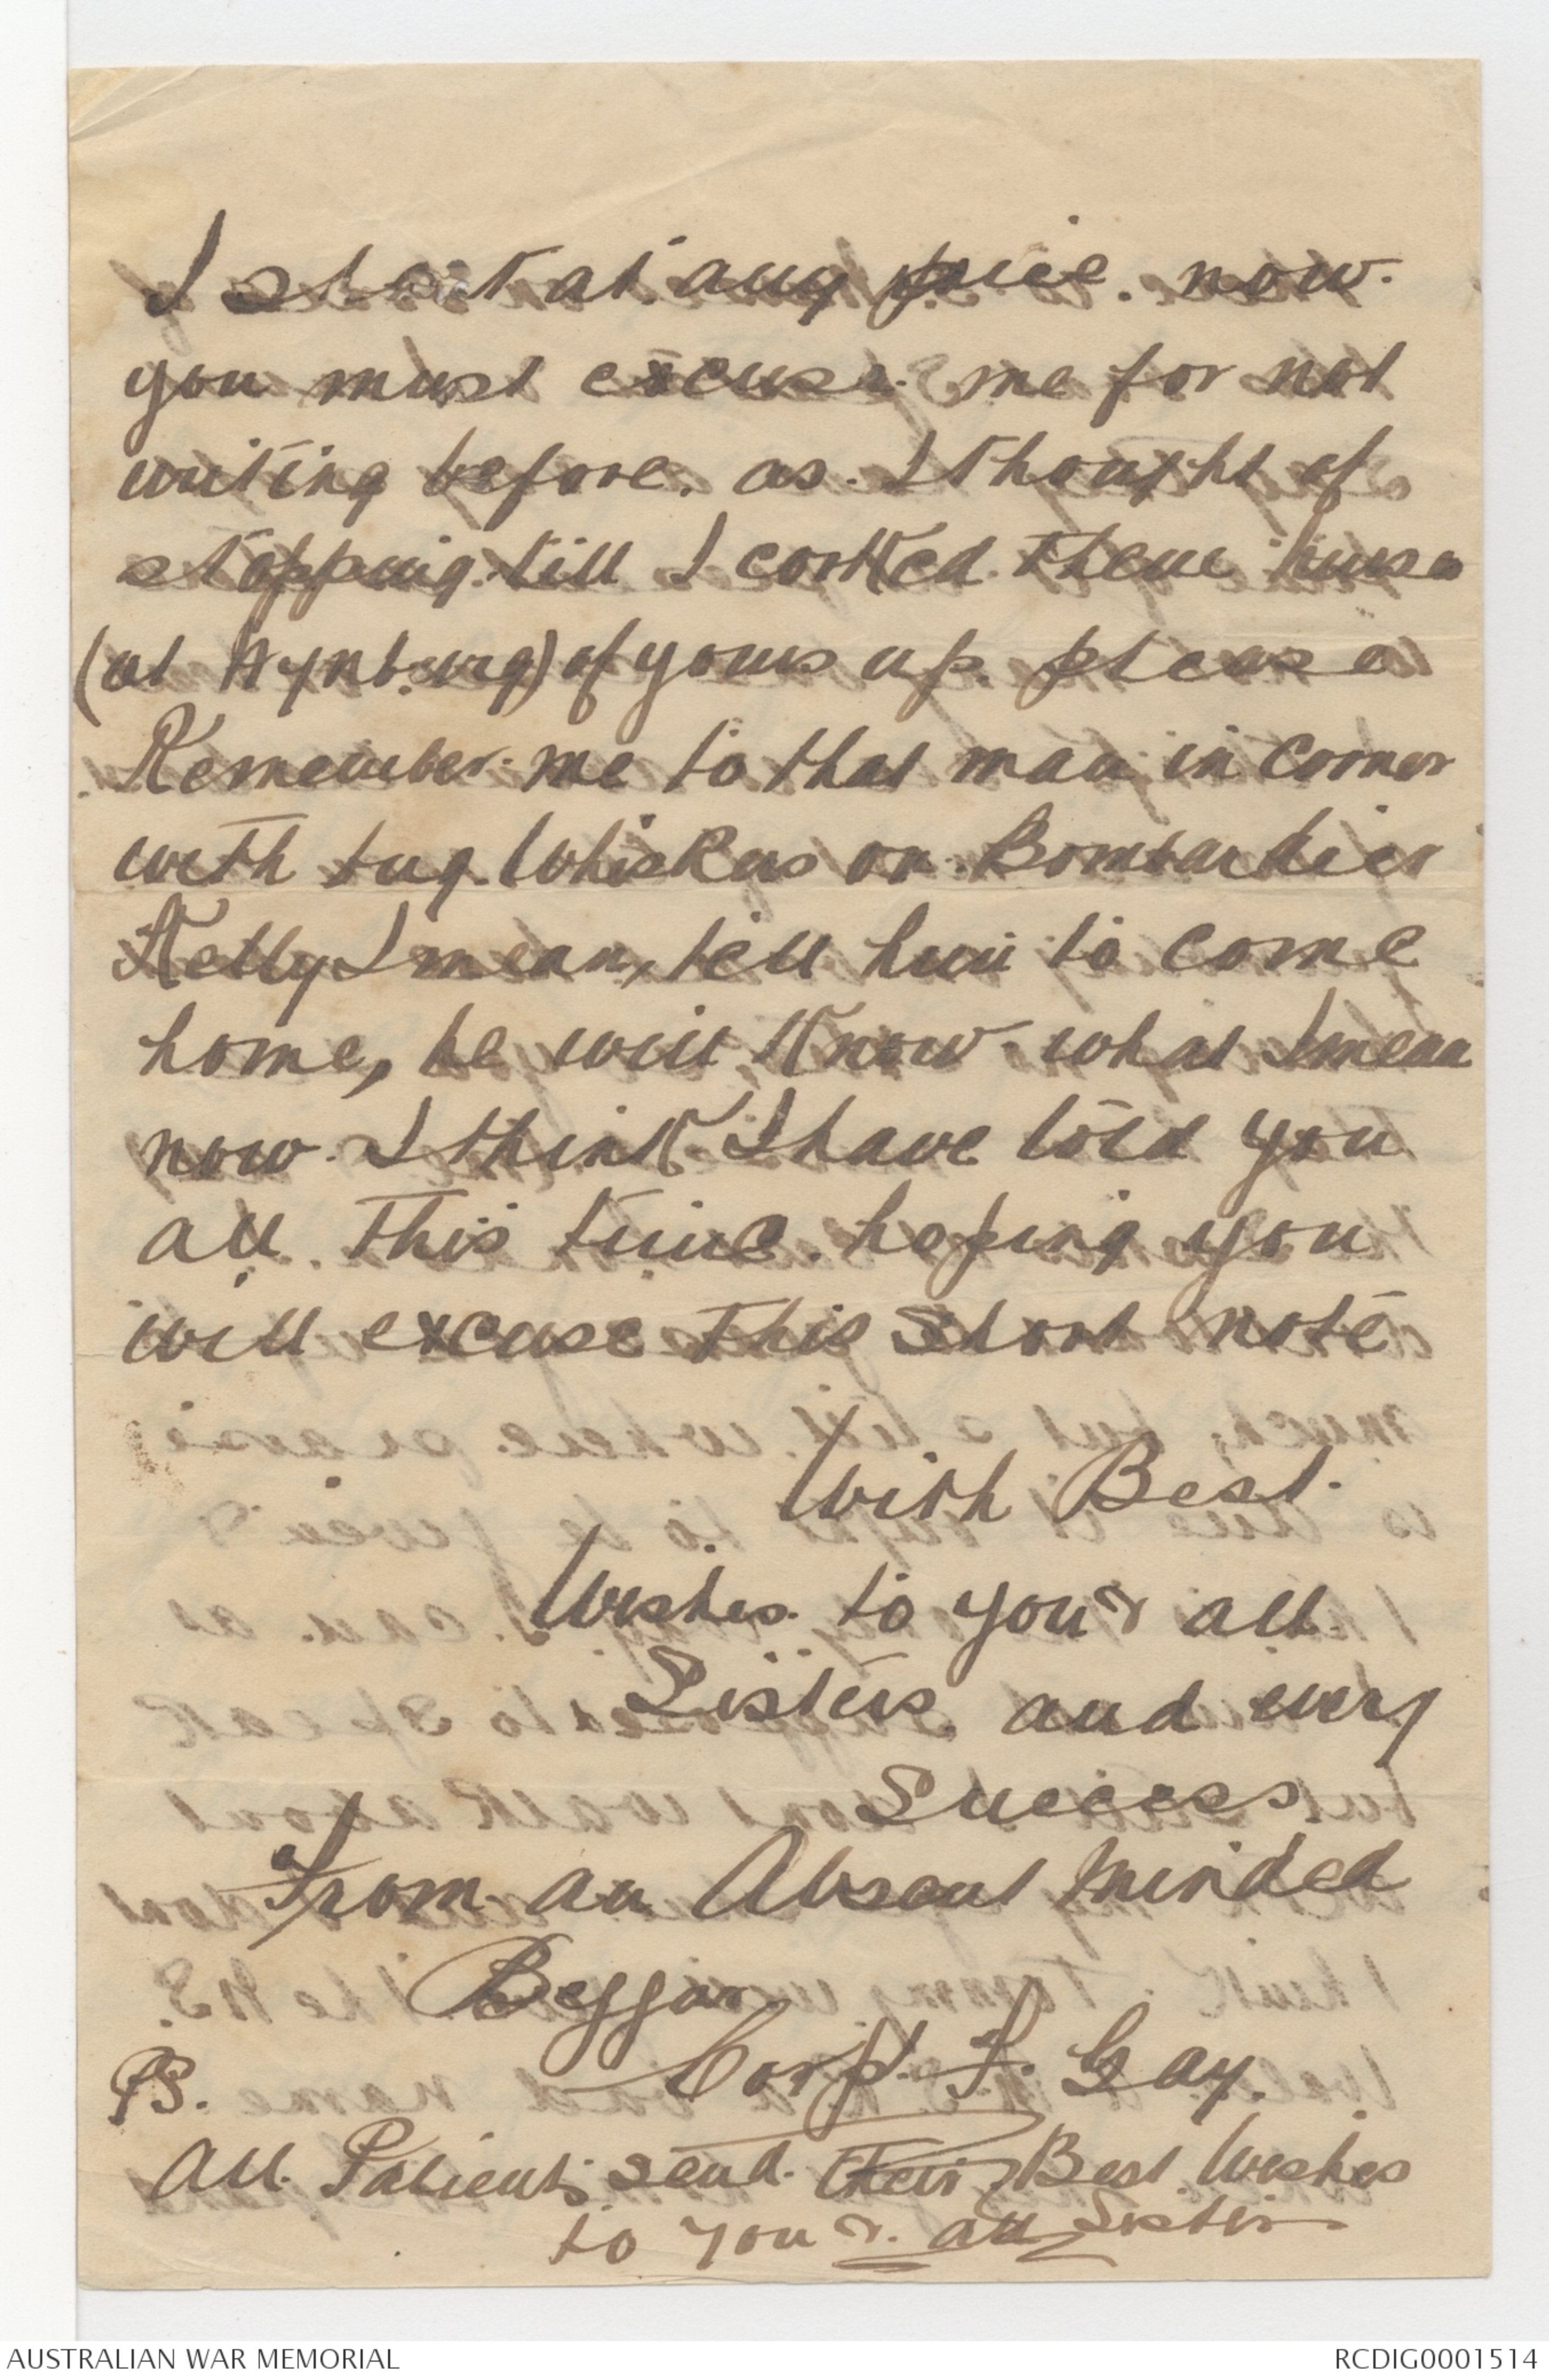 I shant at any price. now.
you must excuse. me for not
writing before. as. I thought of
stopping. till I
(at Wynburg) of yours up. please
Remember. me to that man in corner
with Whiskers or. Bombardier
Kelly I mean, tell him to come
home, he will Know. what I mean
now. I think I have told you
all. this time. hoping you
will excuse this short note
With Best.
Wishes. to you & all.
Sisters and every
Success.
From an Absent Minded
Beggar
Corpl. F. Gay.
PS.
All. Patients send. their Best Wishes
to you &. all Sisters
AUSTRALIAN WAR MEMORIAL
RCDIG0001514